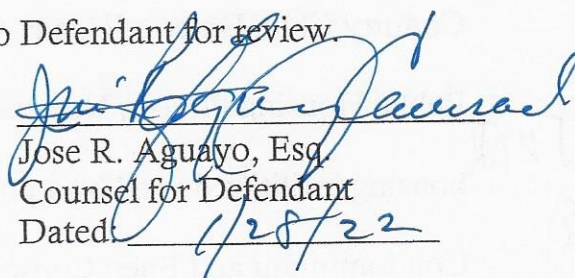 o Defendant for review.
Jose R. Aguayo, Esq.
Counsel for Defendant
Dated: 1/28/22